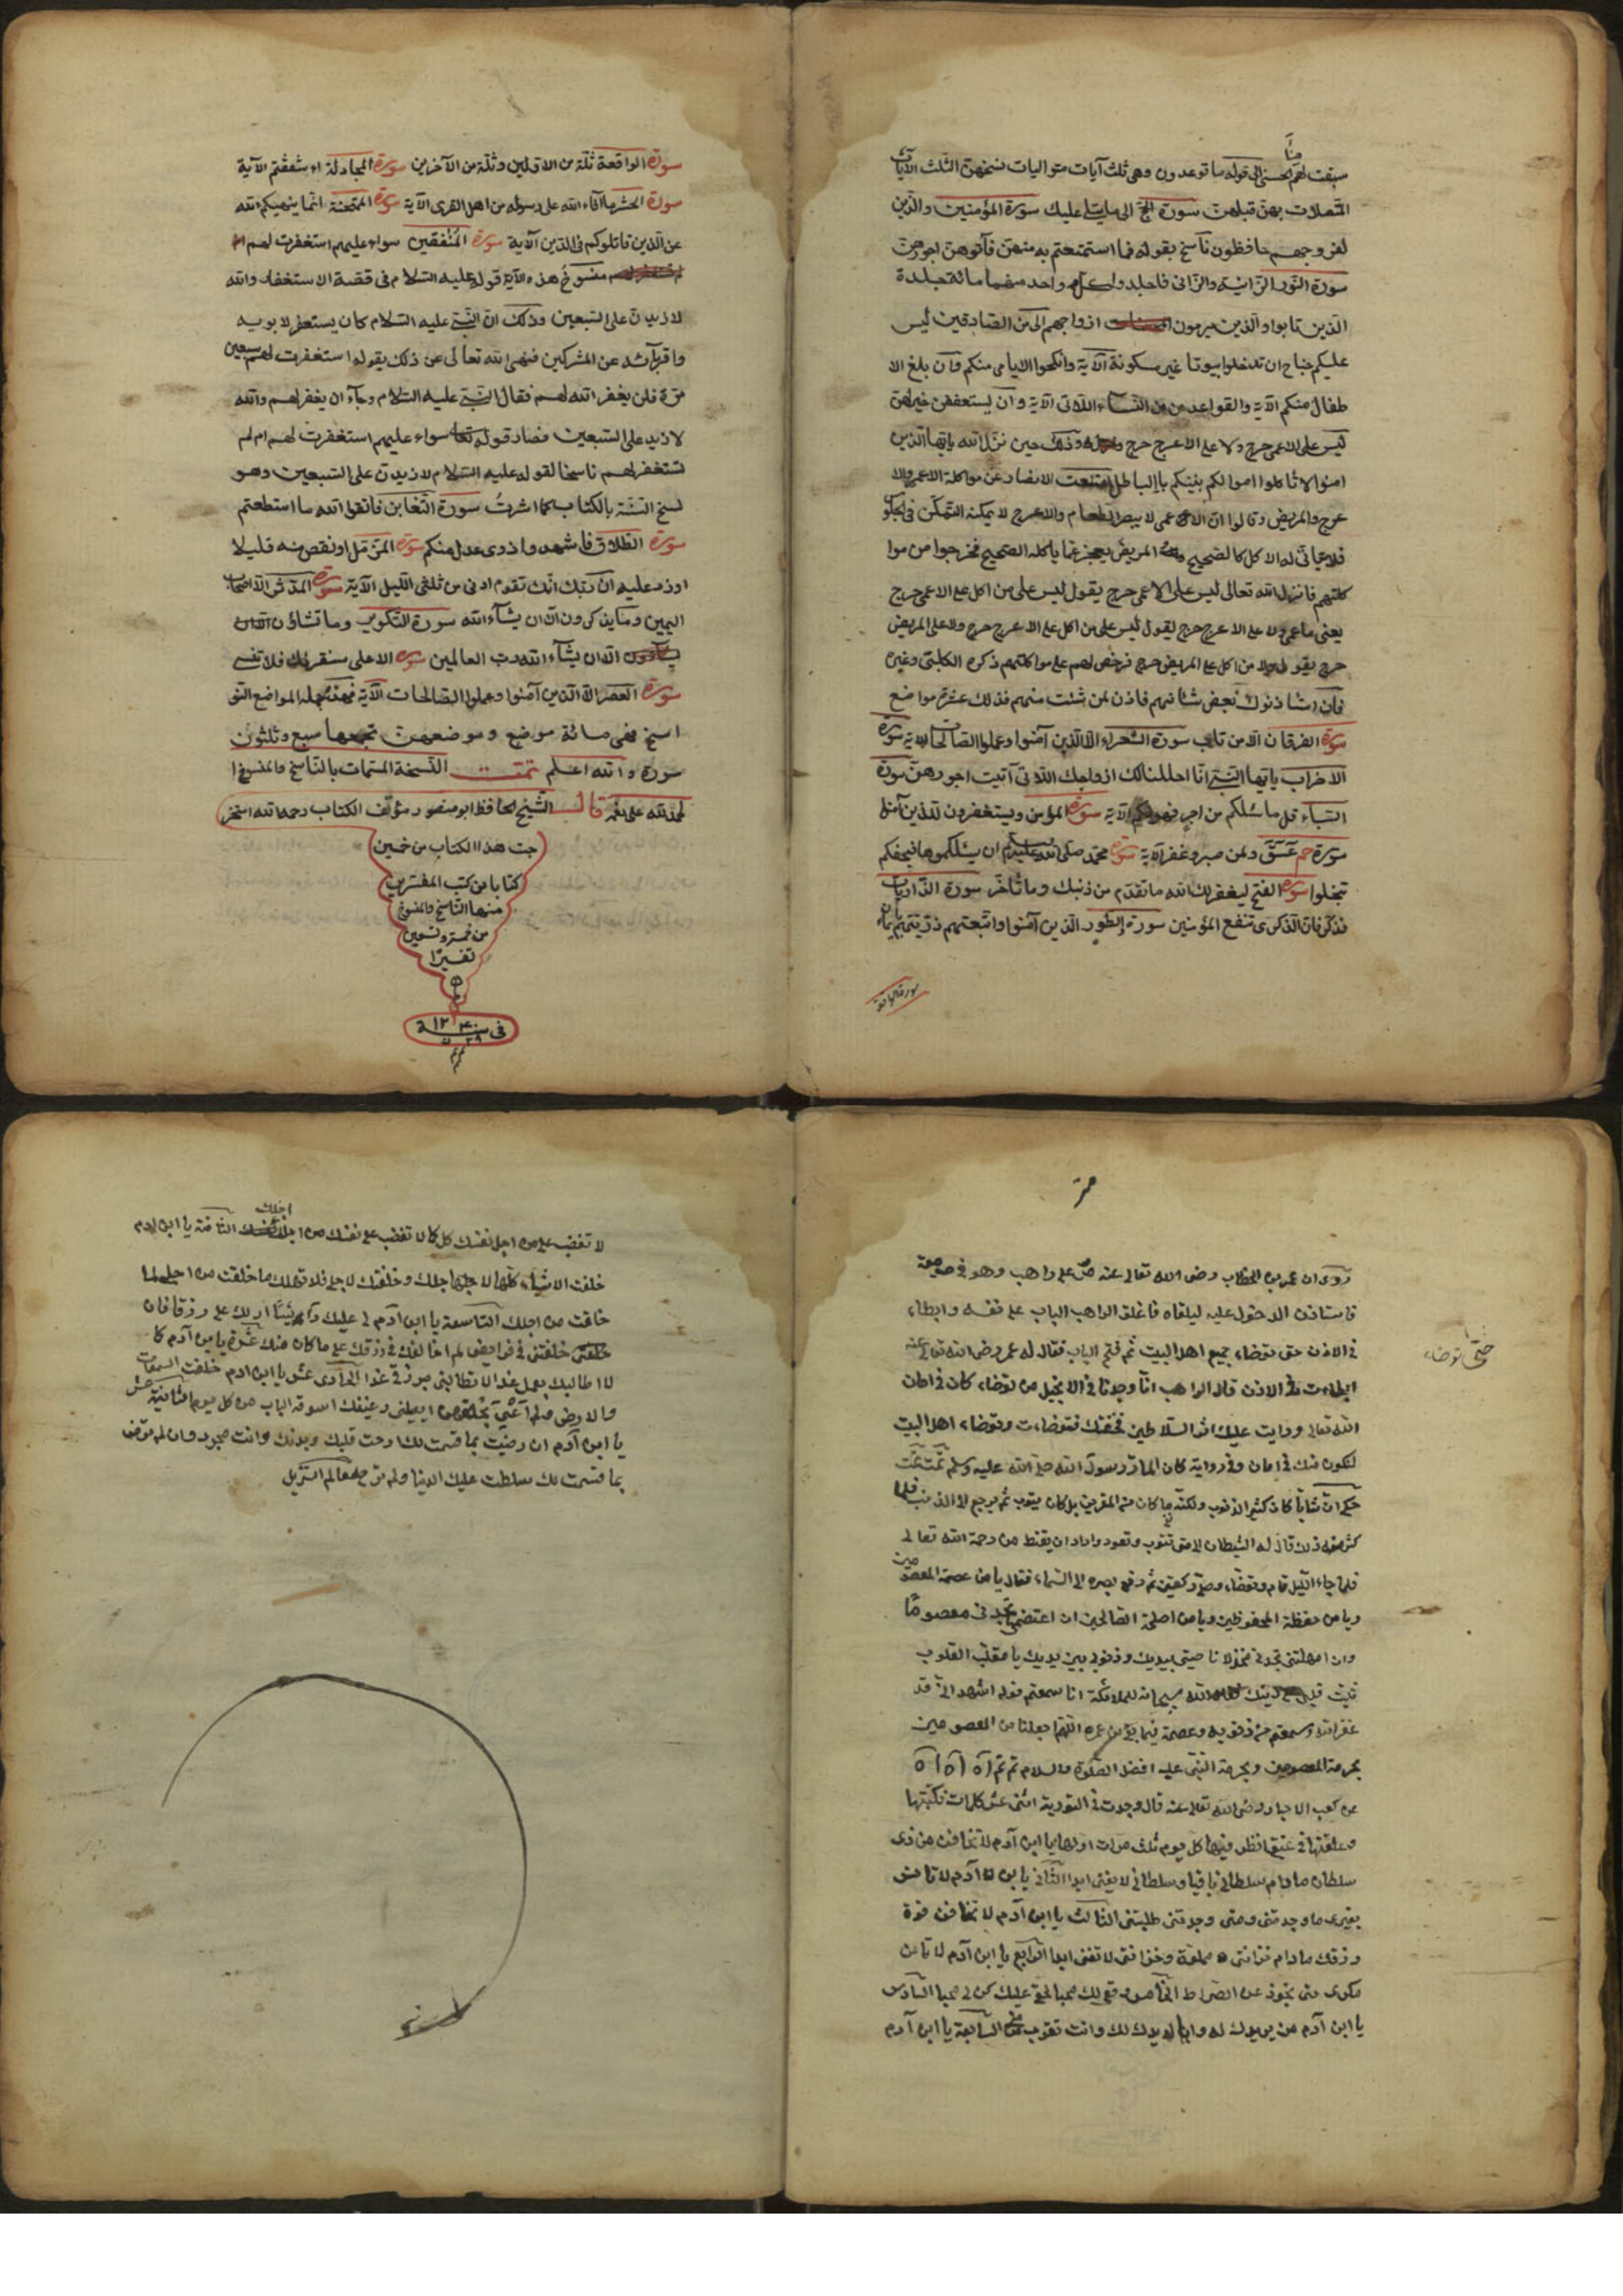 منّا
سبقت لهم الحسنى الى قوله ما توعدون وهى ثلث آيات متواليات نسختهنّ الثلث الآيات
المتصلات بهنّ قبلهنّ سورة الحجّ الى ما يتلى عليك سورة المؤمنين والذين
لفروجهم حافظون ناسخ بقوله فما استمتعتم به منهنّ فآتوهنّ اجورهنّ
سورة النّور الزّانية والزّانى فاجلدوا كل واحد منهما مائة جلدة
الّذين تابوا والّذين يرمون ازواجهم الى من الصّادقين ليس
عليكم جناح ان تدخلوا بيوتا غير مسكونة الآية وانكحوا الايامى منكم وان بلغ الا
طفال منكم الآية والقواعد من النساء اللاتى الآية وان يستعففن خير لهنّ
ليس على الاعمى حرج ولا على الاعرج حرج وذلك حين نزل الله يا ايها الذين
امنوا لا تاكلوا اموالكم بينكم بالباطل امتنعت الانصار عن مواكلة الاعمى والا
عرج والمريض وقالوا انّ الاعمى لا يبصر الطعام والاعرج لا يمكنه التمكّن فى الجلوس
المريض يعجز عمّا ياكله الصحيح فخرجوا من موا
كلتهم فانزل الله تعالى ليس على الاعمى حرج يقول ليس على من اكل مع الاعمى حرج
ولا على الاعرج حرج يقول ليس على من اكل مع الاعرج حرج ولا على المريض
حرج يقول من اكل مع المريض حرج فرخّص لهم على مواكلتهم ذكره الكلبى وغيره
استاذنوك لبعض شانهم فاذن لمن شئت منهم فذلك عشرة مواضع
سورة الفرقان الا من تاب سورة الشعراء الا الذين آمنوا وعملوا الصالحات الآية سورة
الاحزاب يا ايها النبىّ انّا احللنا لك ازواجك اللاتى آتيت اجورهنّ سورة
السباء قل ما سئلتكم من اجر فهو لكم الآية سورة المؤمن ويستغفرون للذين آمنوا
سورة حم عسق ولمن صبر وغفر الآية سورة محمد صلى الله عليه ان يسئلكموها فيحفكم
تبخلوا سورة الفتح ليغفر لك الله ما تقدّم من ذنبك وما تأخّر سورة الذاريات
فذكّر فانّ الذكرى تنفع المؤمنين سورة الطور الذين آمنوا واتبعتهم ذرّيتهم بايمان
سورة الواقعة
سورة الواقعة ثلّة من الاوّلين وثلّة من الآخرين سورة المجادلة ءاشفقتم الآية
سورة الحشر ما افآء الله على رسوله من اهل القرى الآية سورة الممتحنة انّما ينهيكم الله
عن الّذين قاتلوكم فى الدّين الآية سورة المنفقين سواء عليهم استغفرت لهم ام
منسوخ هذه الآية قوله عليه السّلام فى قصة الاستغفار والله
لازيدنّ على السّبعين وذلك انّ النّبىّ عليه السّلام كان يستغفر لابويه
واقربائه عن المشركين فنهى الله تعالى عن ذلك بقوله استغفرت لهم سبعين
مرّة فلن يغفر الله لهم فقال النبىّ عليه السّلام رجآء ان يغفر لهم والله
لازيد على السّبعين فصار قوله تعالى سواء عليهم استغفرت لهم ام لم
تستغفر لهم ناسخا لقوله عليه السّلام لازيدنّ على السّبعين وهو
نسخ السّنّة بالكتاب كما اشرت سورة التّغابن فاتقوا الله ما استطعتم
سورة الطّلاق فاشهدوا ذوى عدل منكم سورة المزّمّل او نقص منه قليلا
او زد عليه انّ ربّك انّك تقوم ادنى من ثلثى اللّيل الآية سورة المدّثّر الّا اصحاب
اليمين وما يذكرون الّا ان يشآء الله سورة التّكوير وما تشاؤن
الّا ان يشآء الله ربّ العالمين سورة الاعلى سنقرئك فلا تنسى
سورة العصر الّا الّذين آمنوا وعملوا الصّالحات الآية فهذه جملة المواضع الّتى
نسخ فهى مائة موضع وموضعين تجمعها سبع وثلثون
سورة والله اعلم تمّت النسخة المسمّات بالنّاسخ والمنسوخ ا
لحمد لله على نعمه قال الشّيخ الحافظ ابو منصور مؤلّف الكتاب رحمه الله استخر
جت هذا الكتاب من خمسين
كتابا من كتب المفسّرين
منها النّاسخ والمنسوخ
من خمسة وتسعين
تفسيرًا
فى سنة
روى ان عمر بن الخطاب رضى الله تعالى عنه مرّ على راهب وهو فى صومعة
فاستاذن الدخول عليه ليلقاه فاغلق الراهب الباب على نفسه وابطاء
فى الاذن حتى توضاء جميع اهل البيت ثم فتح الباب فقال له عمر رضى الله تعالى عنه
ابطاءت فى الاذن قال الراهب انّا وجدنا فى الانجيل من توضاء كان فى امان
الله تعالى ورايت عليك اثر السلاطين فخفتك فتوضاءت وتوضاء اهل البيت
لنكون منك فى امان وفى رواية كان المارّ رسول الله صلى الله عليه وسلم تمّت تمّت
حتّى توضاء
حكى انّ شابّا كان كثير الذنوب ولكنّه ما كان من المصرّين بل كان يتوب ثم يرجع الى الذنب فلمّا
كثر منه ذلك قال له الشيطان الى متى تتوب وتعود واراد ان يقنط من رحمة الله تعالى
فلمّا جاء اللّيل قام وتوضّاء وصلّى ركعتين ثم رفع بصره الى السّماء فقال يا من عصمة المعصومين
ويا من حفظة المحفوظين ويا من اصلحة الصّالحين ان اعتصمتنى تجدنى معصومًا
وان امهلتنى تجدنى مخذولا ناصيتى بيديك وذنوبى بين يديك يا مقلّب القلوب
ثبّت قلبى على دينك فقال الله سبحانه للملائكة انا سمعتم قوله اشهدوا انّى قد
من ذنوبه وعصمة فيما بقى من عمره اللّهمّ اجعلنا من المعصومين
بحرمة المعصومين وبحرمة النّبى عليه افضل الصّلوة والسلام تم تم
عن كعب الاحبار رضى الله تعالى عنه قال وجدت فى التورية اثنى عشر كلمات فكتبتها
وعلّقتها فى عنقى انظر فيها كل يوم ثلث مرات اولها يا ابن آدم لا تخافن من ذى
سلطان ما دام سلطانى باقيا وسلطانى لا يفنى ابدا الثّانى يا ابن آدم لا تانس
بغيرى ما وجدتنى ومتى وجدتنى طلبتنى الثالث يا ابن آدم لا تخافن فوة
رزقك ما دام خزانتى مملوّة وخزانتى لا تفنى ابدا الرّابع يا ابن آدم لا تامن
مكرى حتى تجوز عن الصّراط الخامس وحقّى لك محبا بحقى عليك كن لى محبا السّادس
يا ابن آدم من يريدك له وانا اريدك لك وانت تفرّ منّى السّابعة يا ابن آدم
لا تغضب على من اجل نفسك كل لا تغضب على نفسك من اجلى الثامنة يا ابن ادم
اجلك
خلقت الاشياء كلّها لاجلك وخلقتك لاجلى فلا تهلك ما خلقت من اجلى لما
خلقت من اجلك التاسعة يا ابن آدم لى عليك ولك على رزقا فان
خلفتنى فى فرايضى لم اخالفك فى رزقك على ما كان منك عشرة يا ابن آدم كما
لا اطالبك بعمل غد لا تطالبنى برزق غد الحادى عشر يا ابن ادم خلقت السموات
والارض ولم اعى بخلقهن ايعيينى رغيفك اسوقه اليك من كل يوم الثانية عشر
يا ابن آدم ان رضيت بما قسمت لك ارحت قلبك وبدنك وانت محمود وان لم ترض
بما قسمت لك سلطت عليك الدنيا